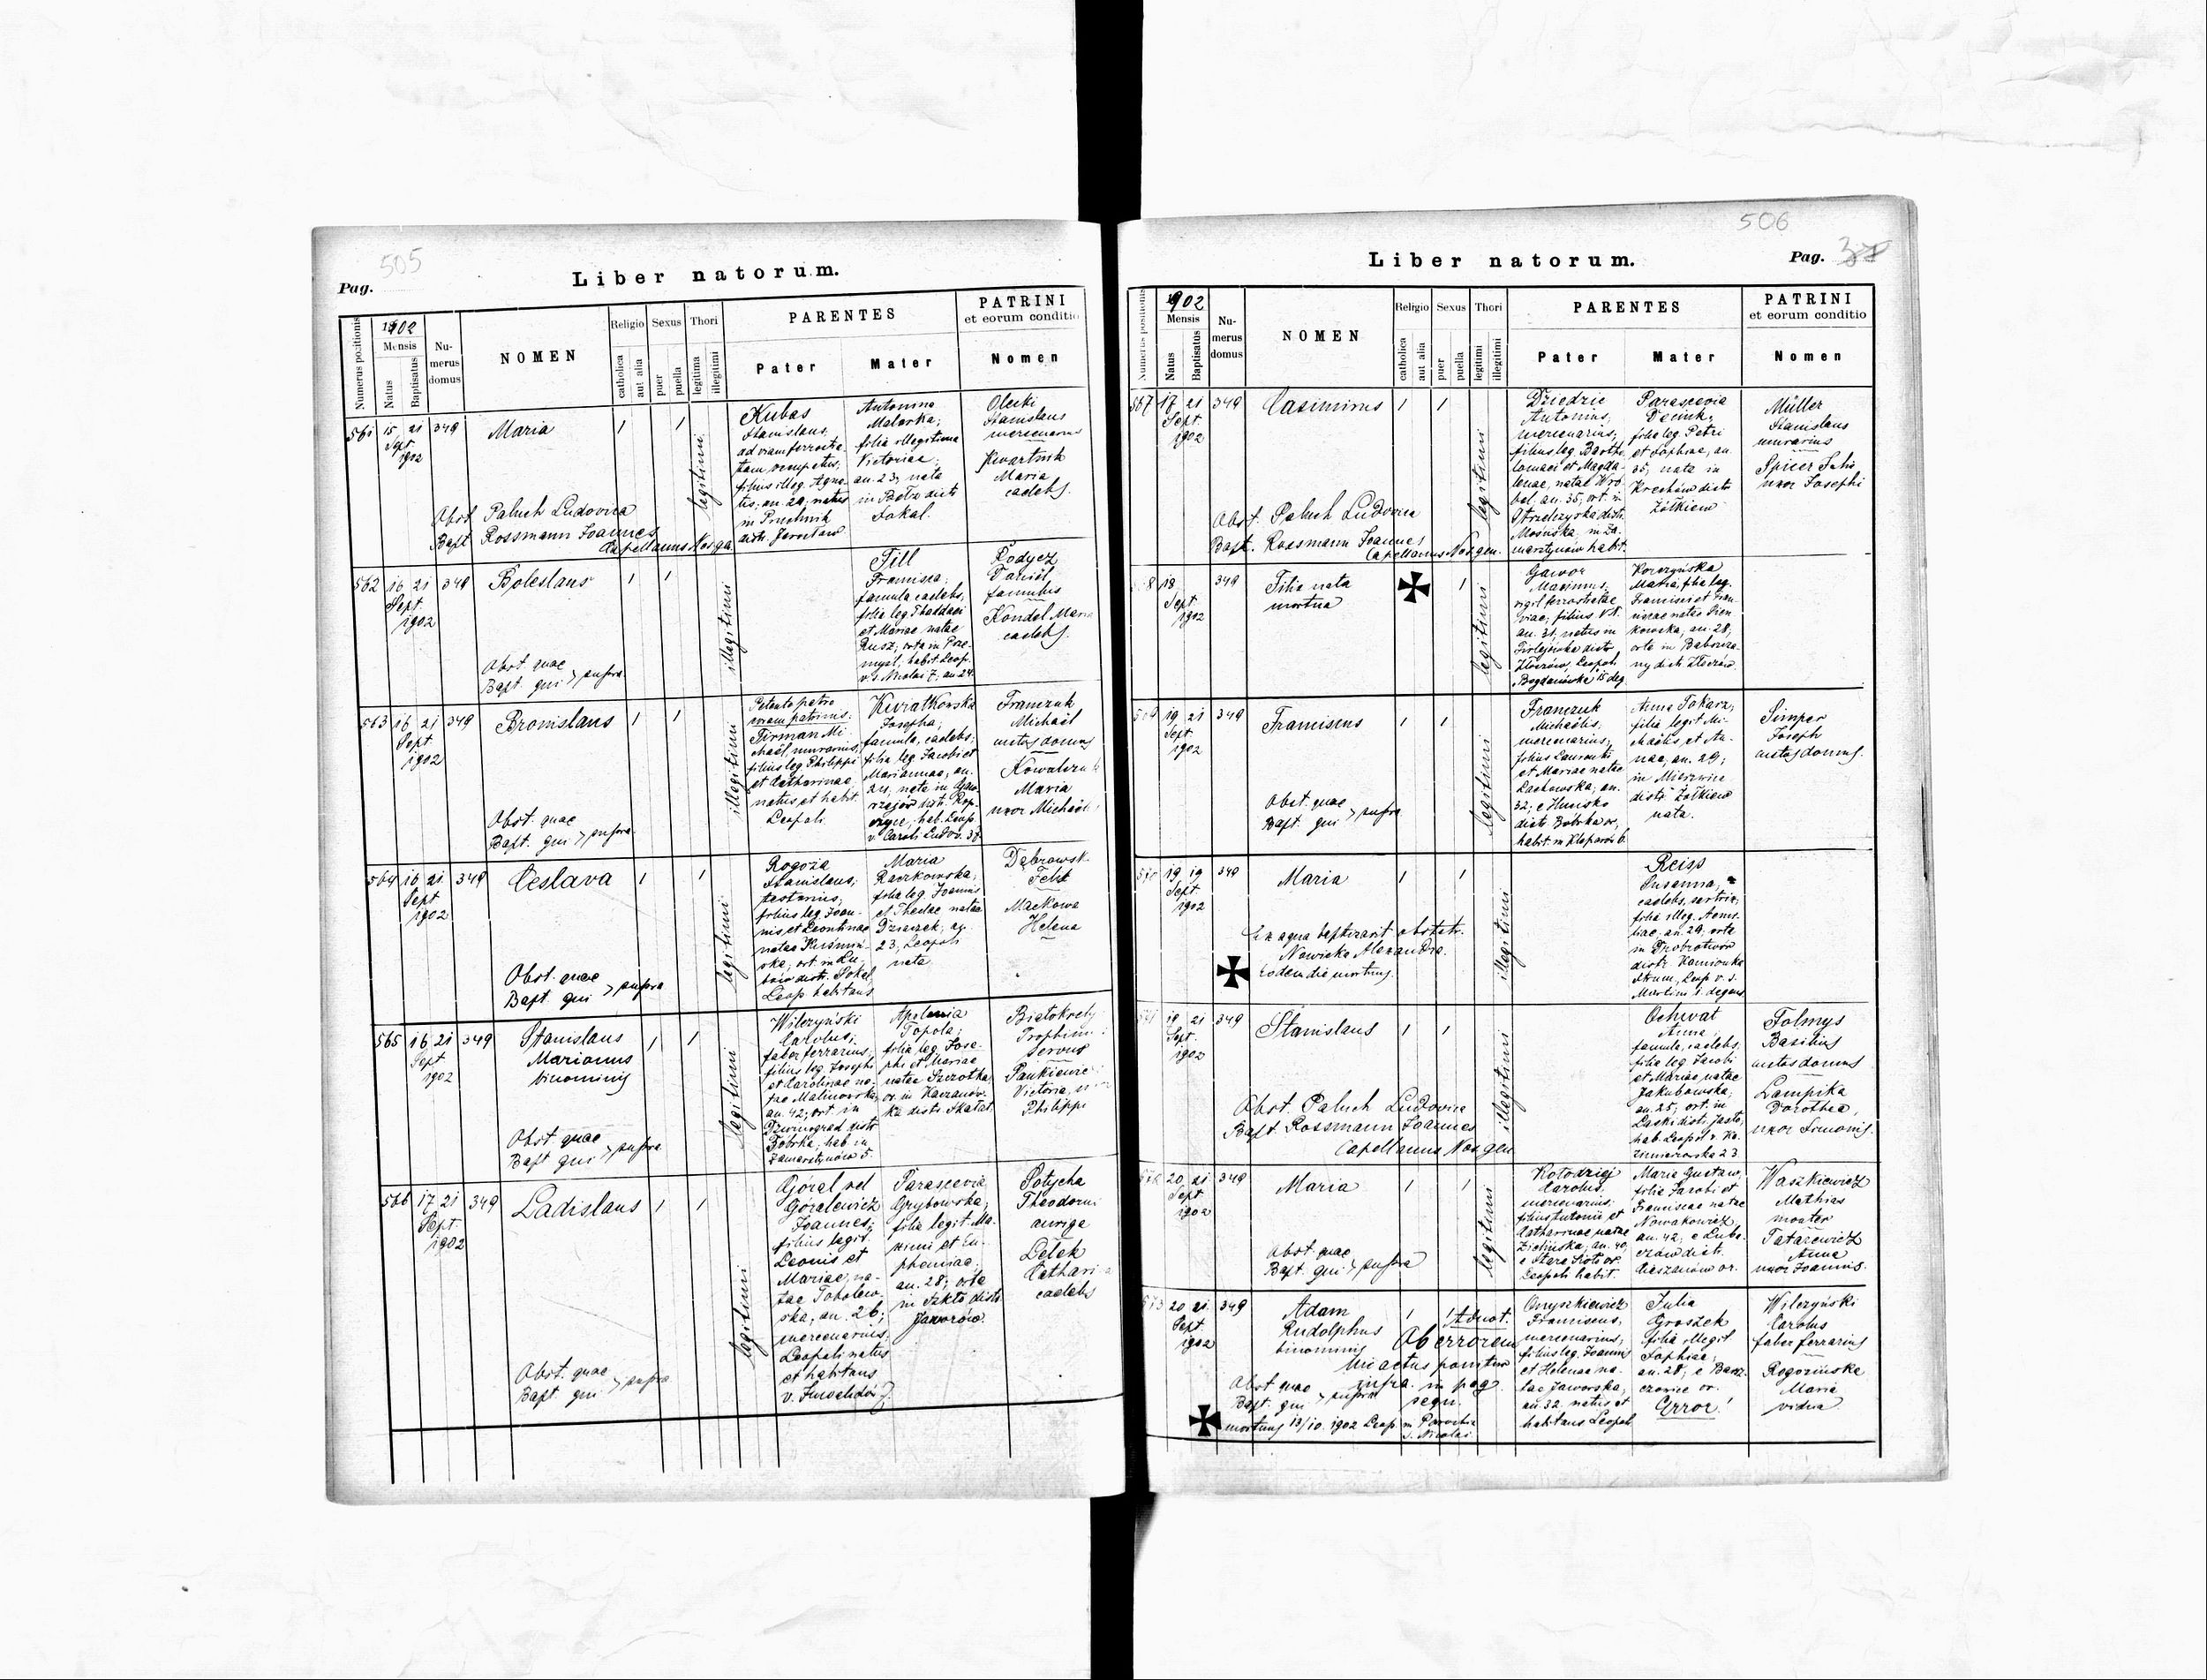 505
Pag.
Liber natorum.
Numerus positionis
1902
Mensis
Natus
Baptisatus
Nu-
merus
domus
NOMEN
Religio
catholica
aut alia
Sexus
puer
puella
Thori
legitima
illegitimi
PARENTES
Pater
Mater
PATRINI
et eorum conditio
Nomen
561 15 21 349 Maria 1 1
Sept.
1902
legitimi
Kubas
Stanislaus,
ad viam ferrostra-
tam occupatus;
filius illeg. Agne-
tis, an. 29, natus
in
distr. Jarosław
Antonina
Malarka;
filia illegitima
Victoriae;
an. 23, nata
in Bełz distr.
Sokal.
Olecki
Stanislaus
mercenarius
Kwartnik
Maria
caelebs.
Obst. Paluch Ludovica
Bapt. Rossmann Joannes
Capellanus Nos. gen.
562 16 21 349 Boleslaus 1 1
Sept.
1902
illegitimi
Till
Francisca;
famula, caelebs,
filia leg. Thaddaei
et Mariae natae
Rusz; orta in Prze-
myśl, habit. Leop.
v. s. Nicolai 7, an. 24.
Rodycz
Daniel
famulus
Kondel Maria
caelebs.
Obst. quae
Bapt. qui > supra
563 16 21 349 Bronislaus 1 1
Sept.
1902
illegitimi
Petente patre
coram patrinis:
Firman Mi-
chaël, murarius,
filius leg. Philippi
et Catharinae,
natus et habit.
Leopoli.
Kwiatkowska
Josepha;
famula, caelebs;
filia leg. Jacobi et
Mariannae; an.
24, nata in
distr. Rop-
czyce; hab. Leop.
v. Caroli Ludov. 37.
Franczuk
Michaël
custos domus
Kowalczuk
Maria
uxor Michaëli
Obst. quae
Bapt. qui > supra
564 16 21 349 Ceslava 1 1
Sept
1902
legitimi
Rogoża
Stanislaus;
filius leg. Joan-
nis, et Leontinae
natae Kuśmir-
ska; ort. in Lu-
distr. Sokal,
Leop. habitans
Maria
Raczkowska,
filia leg. Joannis
et Theclae natae
23, Leopoli
nata
Dąbrowsk
Felix
Maćkowa
Helena
Obst. quae
Bapt. qui > supra
565 16 21 349 Stanislaus 1 1
Sept
1902
Marianus
binominis
legitimi
Wilczyński
Carolus;
faber ferrarius,
filius leg. Josephi
et Carolinae na-
tae Malinowska,
an. 42; ort. in
Dzwinogrod distr.
Bobrka, hab. in
Zamarstynów 5.
Apolonia
Topola;
filia leg. Jose-
phi et Mariae
natae Szczotka,
or. in Kaczanów-
ka distr. Skałat.
Białokoely
Trophim
servus
Pankiewic
Victoria, u
Philippi
Obst. quae
Bapt. qui > supra
566 17 21 349 Ladislaus 1 1
Sept.
1902
legitimi
Góral vel
Góralewicz
Joannes;
filius legit.
Leonis et
Mariae, na-
tae Sobolew-
ska, an. 26;
mercenarius,
Leopoli natus
et habitans
v. Inwalidów 7.
Parascevia
Grybowska;
filia legit. Ma-
ximi et Eu-
phemiae;
an. 28; orta
in Szkło distr.
Jaworów
Potycha
Theodorus
auriga
Lelek
Cathari
caelebs
Obst. quae
Bapt. qui > supra
506
Liber natorum.
Pag.
Numerus positionis
1902
Mensis
Natus
Baptisatus
Nu-
merus
domus
NOMEN
Religio
catholica
aut alia
Sexus
puer
puella
Thori
legitimi
illegitimi
PARENTES
Pater
Mater
PATRINI
et eorum conditio
Nomen
567 17 21 349 Casimirus 1 1
Sept.
1902
legitimi
Dziedzic
Antonius,
mercenarius;
filius leg. Bartho-
lomaei et Magda-
lenae, natae Wró-
bel, an. 35, ort. in
Strzelczyska distr.
Mościska, in Za-
marstynów habit.
Parascevia
filia leg. Petri
et Sophiae, an.
35, nata in
Krechów distr.
Żółkiew
Müller
Stanislaus
murarius
Spicer Julia
uxor Josephi
Obst. Paluch Ludovica
Bapt. Rossmann Joannes
Capellanus Nos. gen.
8 18 349 Filia nata 1
Sept
1902
mortua
legitimi
Gawor
Maximus;
vigil ferrostratae
viae; filius
an. 31, natus in
distr.
Złoczów, Leopoli
Bogdanówka 15 deg.
Korczyńska
Maria, filia leg.
Francisci et Fran-
ciscae natae Sien-
kowska, an. 28,
orta in
ny distr. Złoczów
569 19 21 349 Franciscus 1 1
Sept.
1902
legitimi
Franczuk
Michaëlis;
mercenarius;
filius Laurentii
et Mariae natae
Lachowska; an.
32; e
distr. Bóbrka or,
habit. in Kleparów 6.
Anna Tokarz;
filia legit. Mi-
chaëlis, et An-
nae, an. 29;
in Mierzwica
distr. Żółkiew
nata.
Simper
Joseph
custos domus.
Obst. quae
Bapt. qui > supra
570 19 19 349 Maria 1 1
Sept.
1902
illegitimi
Reiss
Susanna;
caelebs, sartrix;
filia illeg. Annis-
siae; an. 29, orta
in Dobrotwór
distr. Kamionka
Strum, Leop v. s.
Martini 1. degens
Ex aqua baptizavit obstetr.
Nowicka Alexandra.
Eodem die mortuus.
571 19 21 349 Stanislaus 1 1
Sept.
1902
illegitimi
Ochwat
Anna
famula, caelebs,
filia leg. Jacobi
et Mariae natae
Jakubowska;
an. 25, ort. in
Laski distr. Jasło,
hab. Leopol v. Ka-
zimierowska 23
Folmys
Basilius
custos domus
Lampika
Dorothea,
uxor Simonis.
Obst. Paluch Ludovica
Bapt. Rossmann Joannes
Capellanus Nos. gen
572 20 21 349 Maria 1 1
Sept
1902
legitimi
Kołodziej
Carolus,
mercenarius,
filius Antonii et
Catharinae natae
Zielińska, an. 40,
e Stara Sioło or.
Leopoli habit.
Maria Gustaw,
filia Jacobi et
Franciscae natae
Nowakowicz,
an. 42, e Luba-
czów distr.
Cieszanów or.
Waszkiewicz
Mathias
Tatarewicz
Anna
uxor Joannis.
Obst. quae
Bapt. qui > supra
573 20 21 349 Adam 1 1
Sept
1902
Rudolphus
binominis
Adnot.
Ob errorem
hic actus ponitur
infra in pag.
sequ.
Onyszkiewicz
Franciscus,
mercenarius;
filius leg. Joannis
et Helenae na-
tae Jaworska,
an. 32 natus et
habitans Leopol
Julia
Groszek
filia illegit
Sophiae;
an. 28; e Barsz-
czowice or.
Error!
Wilczyński
Carolus
faber ferrarius
Rogozińska
Maria
vidua
Obst. quae
Bapt. qui > supra
mortuus 13/10. 1902 Leop. in Parochia
S. Nicolai